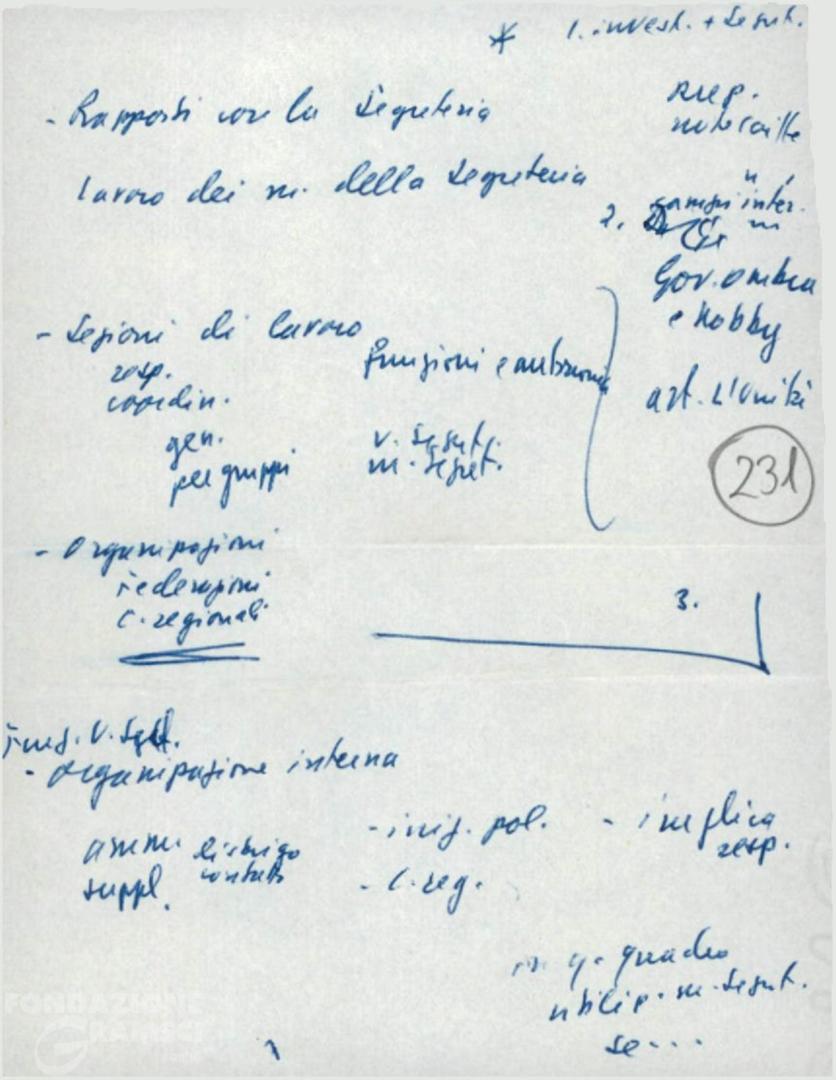 * 1. invest. + Segret.
- Rapporti con la Segreteria
resp.
notarille
lavoro dei m. della Segreteria
2. campi inter.
Gov. ombra
e hobby
- Sezioni di lavoro
funzioni e autonomia
resp.
coordin.
art. L'Unità
gen.
v. Segret.
per gruppi
m. Segret.
231
- Organizzazioni
Federazioni
C. regionali
3.
funz. V. Segr.
- Organizzazione interna
amm. disbrigo
suppl. contatti
- iniz. pol.
- C. reg.
- implica
resp.
q. quadro
utiliz. m. Segret.
se...
FONDAZIONE
GRAMSCI